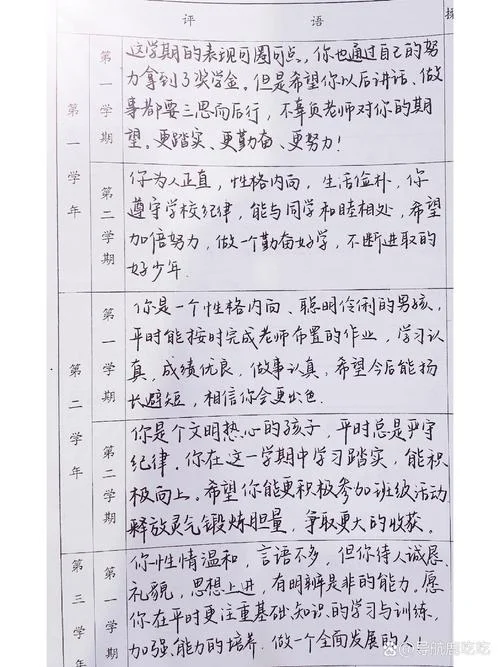 评语
第一学年
第一学期
这学期的表现可圈可点,你也通过自己的努
力拿到了奖学金。但是希望你以后讲话、做
事都要三思而后行,不辜负老师对你的期
望。更踏实、更勤奋、更努力!
第二学期
你为人正直,性格内向,生活俭朴,你
遵守学校纪律,能与同学和睦相处,希望
加倍努力,做一个勤奋好学,不断进取的
好少年.
第二学年
第一学期
你是一个性格内向、聪明伶俐的男孩,
平时能按时完成老师布置的作业,学习认
真,成绩优良,做事认真,希望今后能扬
长避短,相信你会更出色.
第二学期
你是个文明热心的孩子,平时总是严守
纪律。你在这一学期中学习踏实,能积
极向上。希望你能更积极参加班级活动
释放灵气锻炼胆量,争取更大的收获。
第三学年
第一学期
你性情温和,言语不多,但你待人诚恳、
礼貌,思想上进,有明辨是非的能力。愿
你在平时更注重基础知识的学习与训练,
加强能力的培养.做一个全面发展的人!
导航鹿吃吃